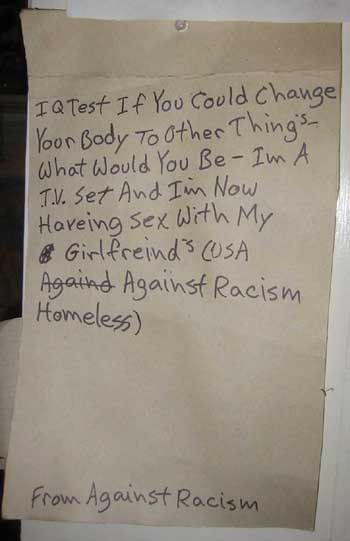 IQ Test If You Could Change
Your Body To Other Thing's-
What Would You Be - I'm A
T.V. Set And I'm Now
Haveing Sex With My
Girlfreind's (USA
Againd Against Racism
Homeless)
From Against Racism